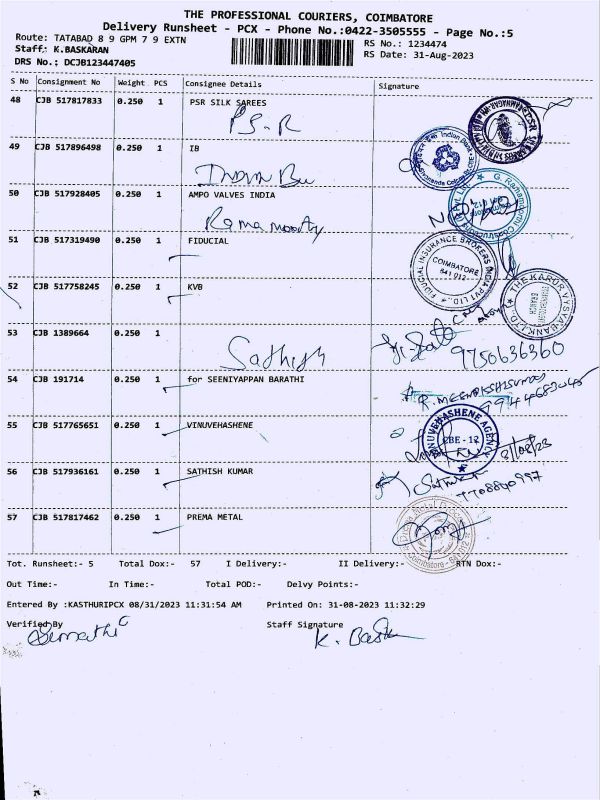 THE PROFESSIONAL COURIERS, COIMBATORE
Delivery Runsheet - PCX - Phone No.:0422-3505555 - Page No.:5
Route: TATABAD 8 9 GPM 7 9 EXTN
RS No.: 1234474
Staff: K.BASKARAN
RS Date: 31-Aug-2023
DRS No.: DCJB123447405
S No Consignment No Weight PCS Consignee Details Signature
48 CJB 517817833 0.250 1 PSR SILK SAREES
PS-R
49 CJB 517896498 0.250 1 IB
50 CJB 517928405 0.250 1 AMPO VALVES INDIA
Rama moorty
51 CJB 517319490 0.250 1 FIDUCIAL
FIDUCIAL INSURANCE BROKERS INDIA PVT LTD.,
COIMBATORE
641 012
52 CJB 517758245 0.250 1 KVB
THE KARUR VYSYA BANK LTD.
53 CJB 1389664 0.250 1
Sathish
9750636360
54 CJB 191714 0.250 1 for SEENIYAPPAN BARATHI
55 CJB 517765651 0.250 1 VINUVEHASHENE
VINUVEHASHENE AGENCY
CBE - 12
56 CJB 517936161 0.250 1 SATHISH KUMAR
57 CJB 517817462 0.250 1 PREMA METAL
Tot. Runsheet:- 5 Total Dox:- 57 I Delivery:- II Delivery:- RTN Dox:-
Out Time:- In Time:- Total POD:- Delvy Points:-
Entered By :KASTHURIPCX 08/31/2023 11:31:54 AM Printed On: 31-08-2023 11:32:29
Verified By Staff Signature
K. Bask